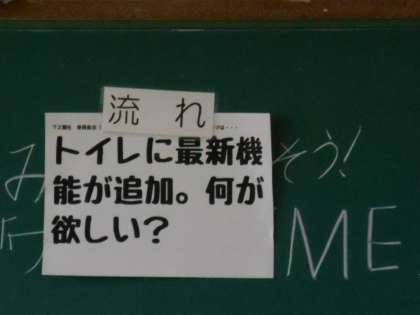 流れ
トイレに最新機
能が追加。何が
欲しい?
み
そう!
ME